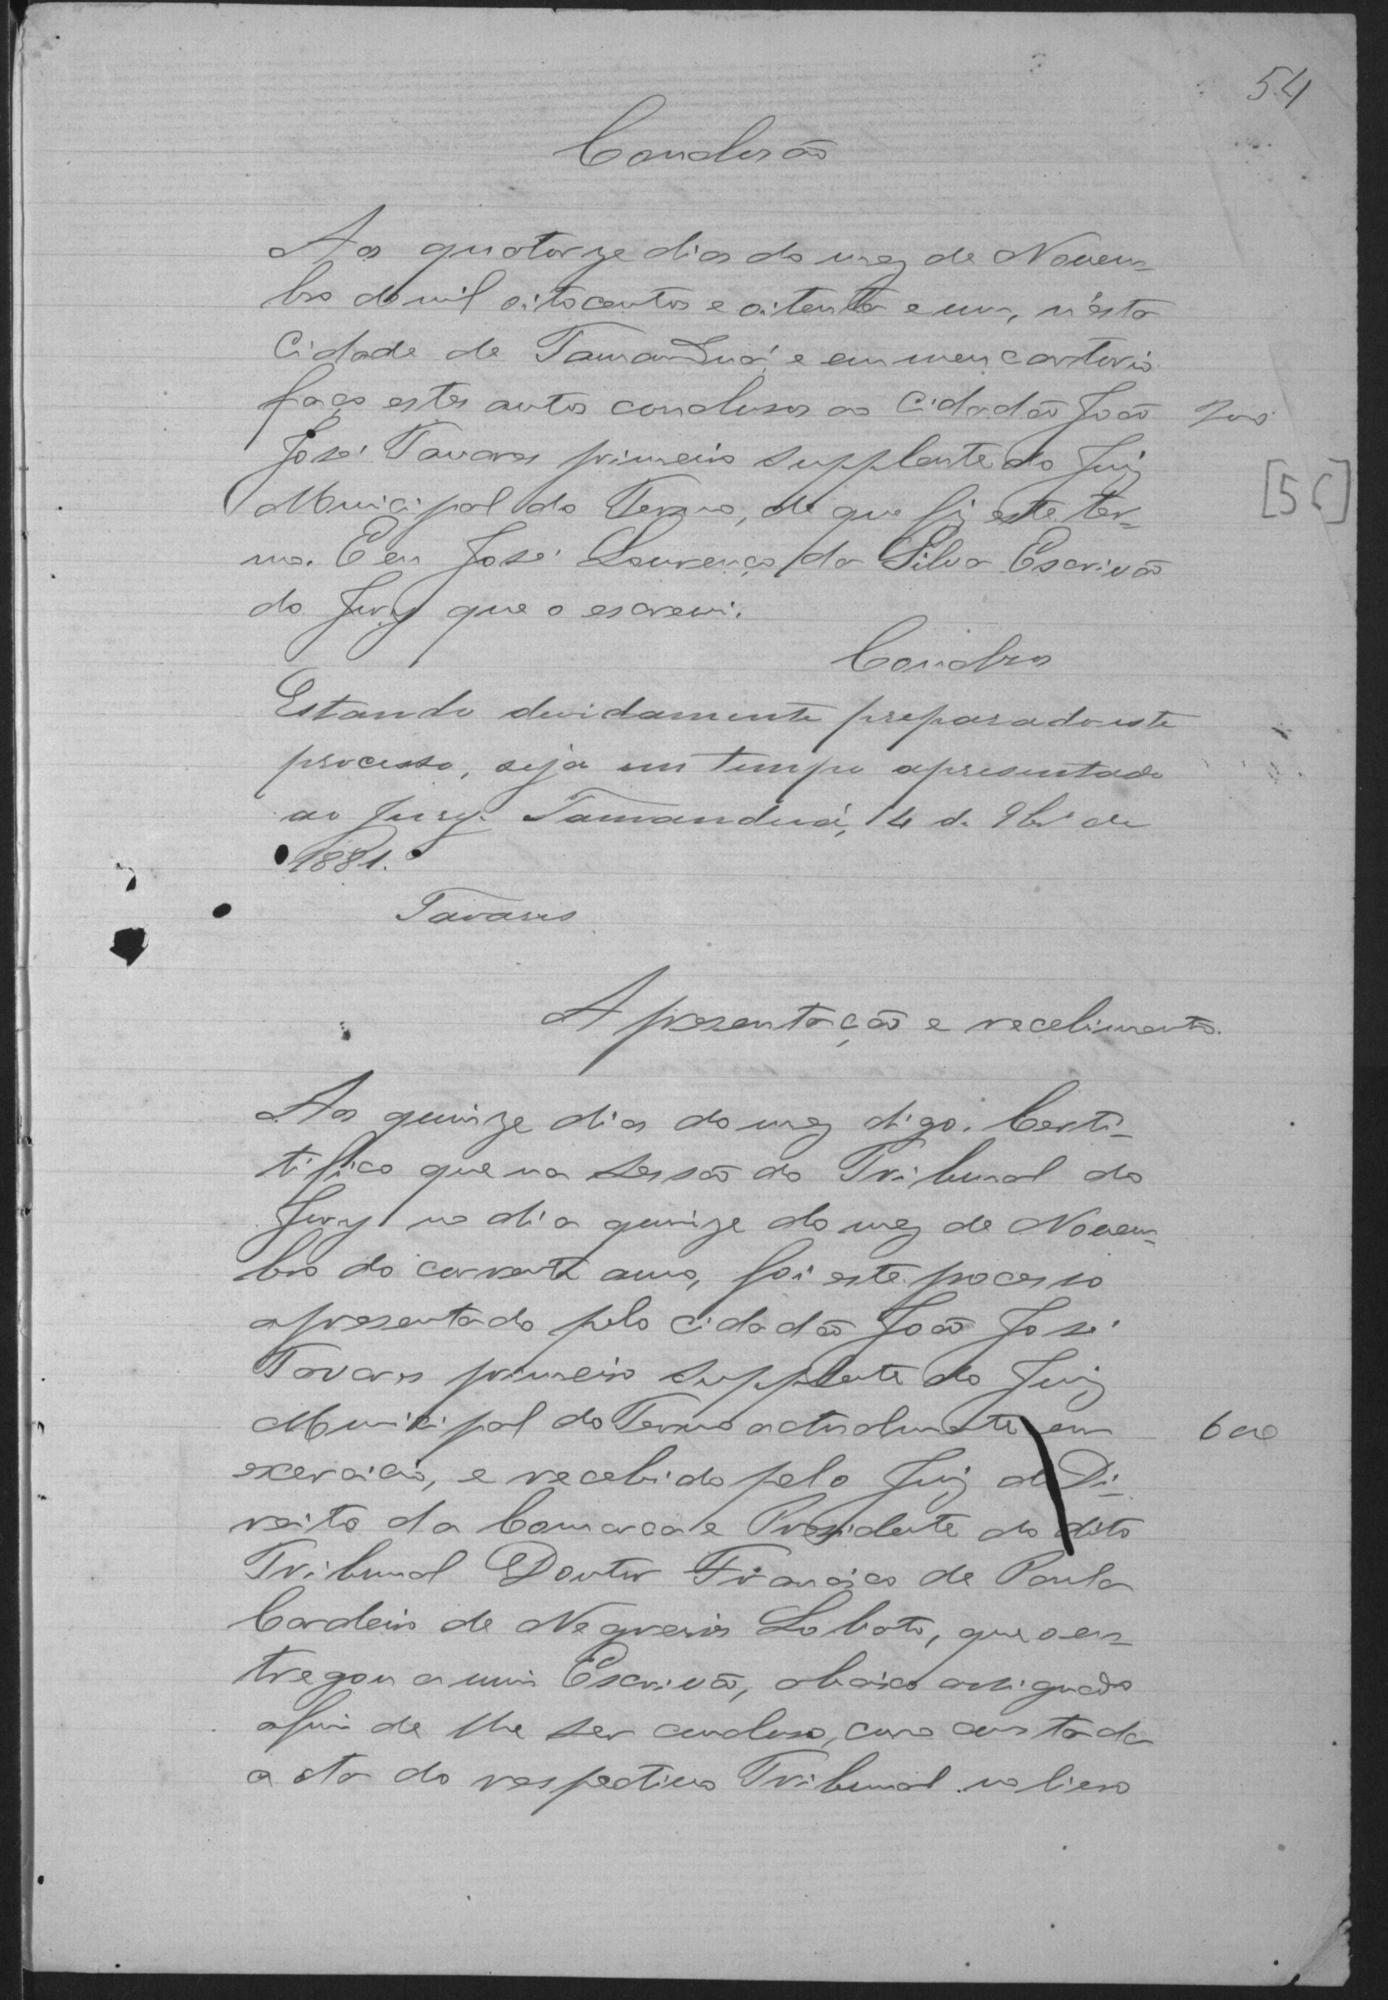 54
Conclusão
Aos quatorze dias do mez de Novem-
bro de mil oitocentos e oitenta e um, n'esta
Cidade de Tamanduá e em meu cartorio
faço estes autos conclusos ao Cidadão João
José Tavares primeiro supplente do Juiz
[56]
Municipal do Termo, de que fiz este ter-
mo. E eu José Lourenço da Silva Escrivão
do Jury que o escrevi.
Conclos
Estando devidamente preparado este
processo, seja em tempo apresentado
ao Jury. Tamanduá, 14 de 9br.º de
1881.
Tavares
Apresentação e recebimento.
Aos quinze dias do mez digo. Certi-
tifico que na sessão do Tribunal do
Jury no dia quinze do mez de Novem-
bro do corrente anno, foi este processo
apresentado pelo cidadão João José
Tavares primeiro supplente do Juiz
Municipal do Termo actualmente em 600
exercicio, e recebido pelo Juiz de Di-
reito da Comarca e Presidente do dito
Tribunal Doutor Francisco de Paula
Cordeiro de Negreiros Lobato, que o en-
tregou a mim Escrivão, abaixo assignado
afim de lhe ser concluso, como consta da
acta do respectivo Tribunal no livro